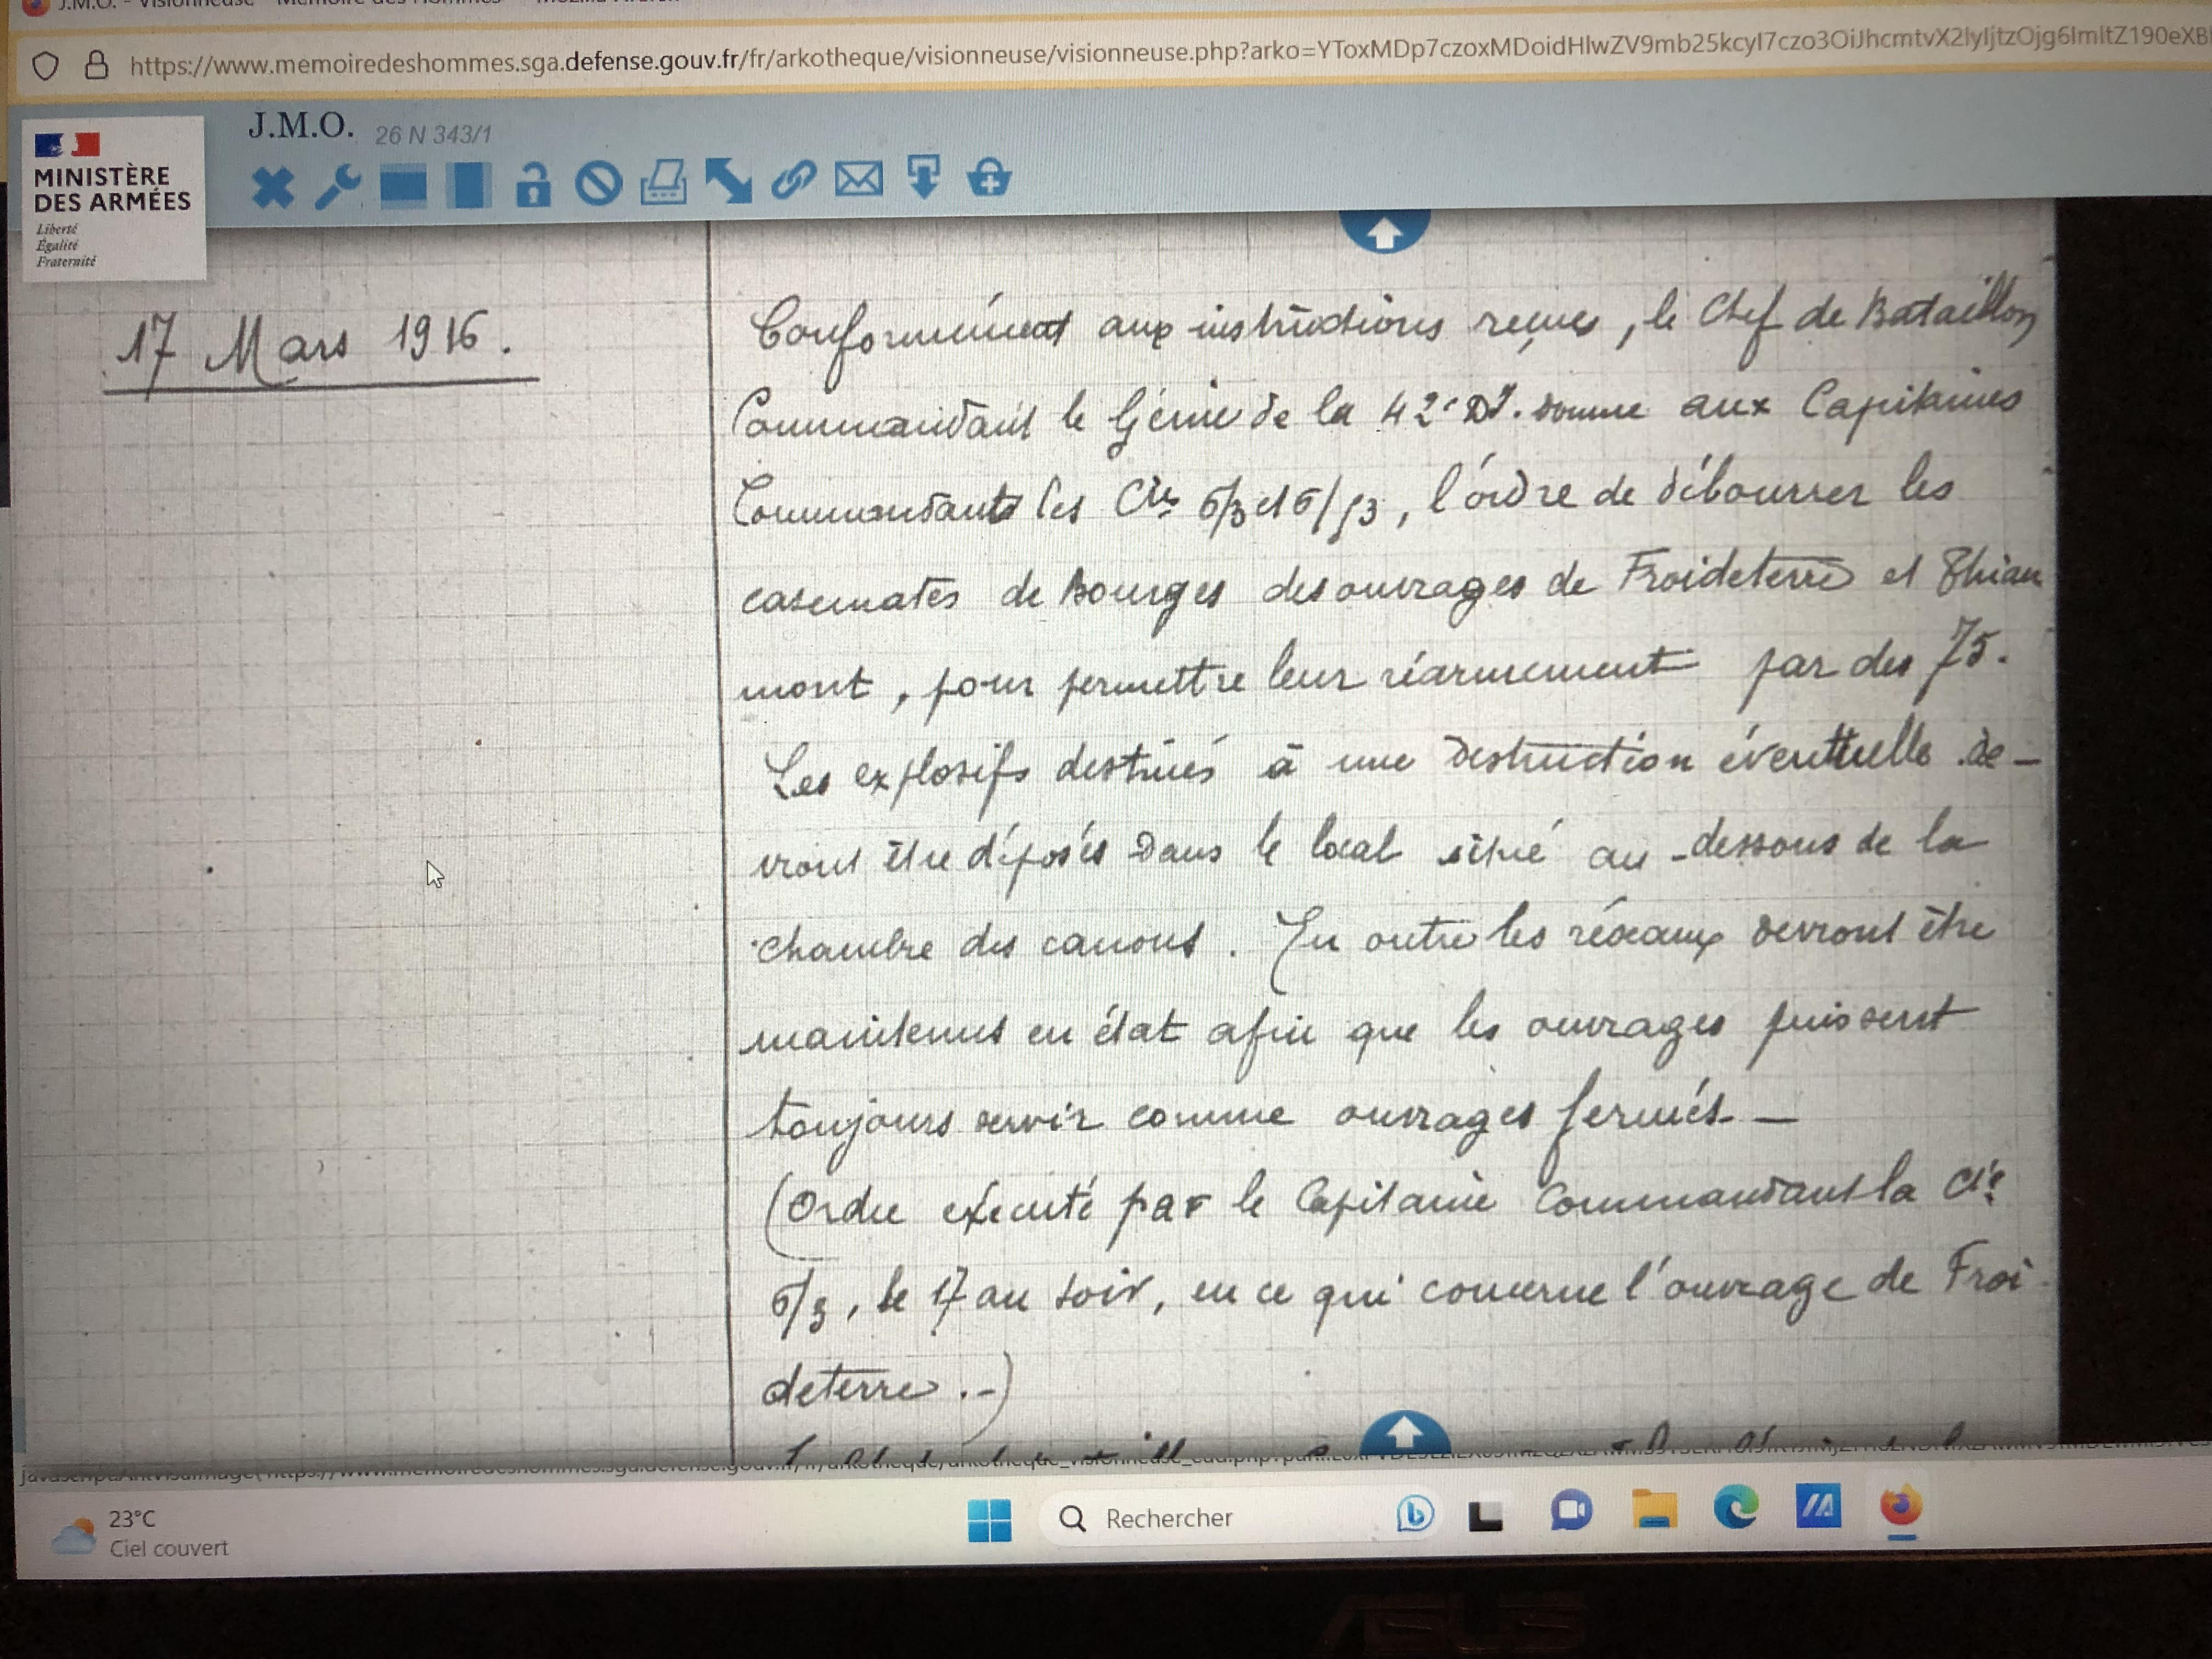 J.M.O. - Visionneuse - Mémoire des Hommes — Mozilla Firefox
https://www.memoiredeshommes.sga.defense.gouv.fr/fr/arkotheque/visionneuse/visionneuse.php?arko=
J.M.O. 26 N 343/1
MINISTÈRE
DES ARMÉES
Liberté
Égalité
Fraternité
17 Mars 1916.
Conformément aux instructions reçues, le Chef de Bataillon
Commandant le Génie de la 42e DI. donne aux Capitaines
Commandants les Cies 6/3 et 6/53, l'ordre de débourrer les
casemates de Bourges des ouvrages de Froideterre et Thiau
mont, pour permettre leur réarmement par des 75.
Les explosifs destinés à une destruction éventuelle de-
vront être déposés dans le local situé au-dessous de la
chambre des canons. En outre les réseaux devront être
maintenus en état afin que les ouvrages puissent
toujours servir comme ouvrages fermés. —
(Ordre exécuté par le Capitaine Commandant la Cie
6/3, le 17 au soir, en ce qui concerne l'ouvrage de Froi-
deterre.-)
23°C
Ciel couvert
Rechercher
ASUS